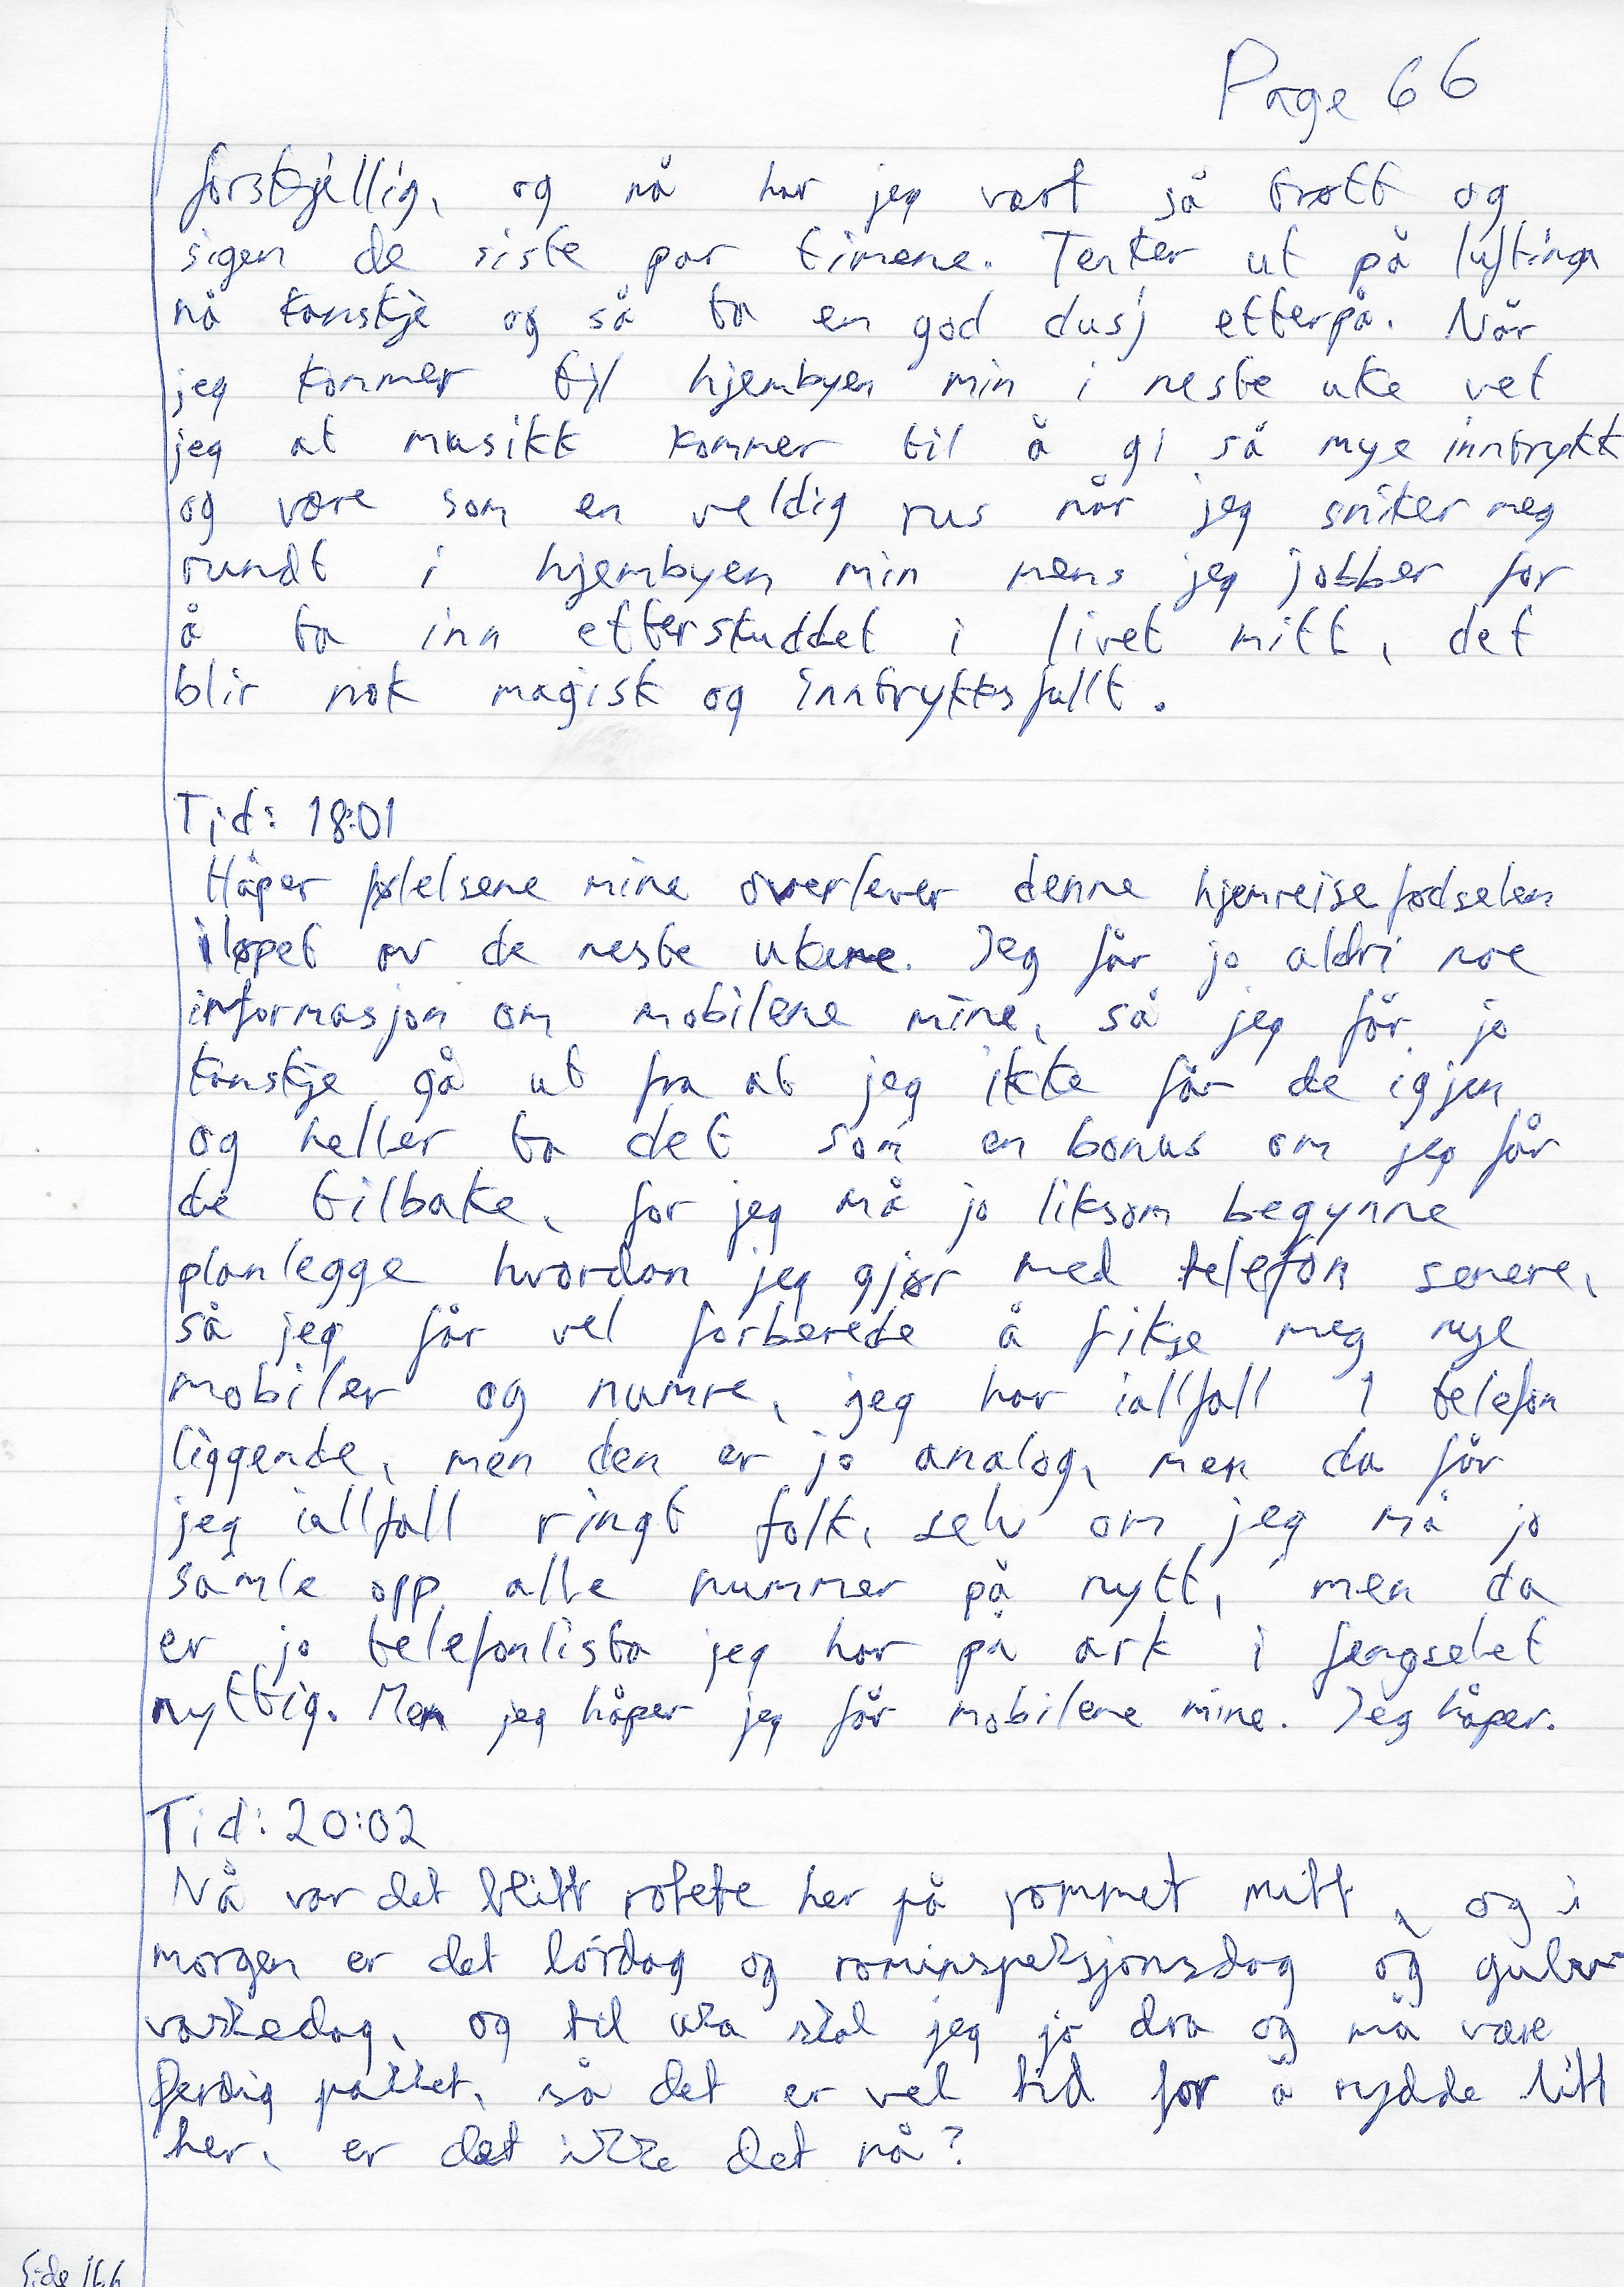 Page 66
forskjellig, og nå har jeg vært så trøtt og
sigen de siste par timene. Tenker ut på luftinga
nå kanskje og så ta en god dusj etterpå. Når
jeg kommer til hjembyen min i neste uke vet
jeg at musikk kommer til å gi så mye inntrykk
og være som en veldig rus når jeg sniker meg
rundt i hjembyen min mens jeg jobber for
å ta inn etterskuddet i livet mitt, det
blir nok magisk og inntrykksfullt.
Tid: 18:01
Håper følelsene mine overlever denne hjemreisefødselen
iløpet av de neste ukene. Jeg får jo aldri noe
informasjon om mobilene mine, så jeg får jo
kanskje gå ut fra at jeg ikke får de igjen
og heller ta det som en bonus om jeg får
de tilbake, for jeg må jo liksom begynne
planlegge hvordan jeg gjør med telefon senere,
så jeg får vel forberede å fikse meg nye
mobiler og numre, jeg har iallfall 1 telefon
liggende, men den er jo analog, men da får
jeg iallfall ringt folk, selv om jeg må jo
samle opp alle nummer på nytt, men da
er jo telefonlista jeg har på ark i fengselet
nyttig. Men jeg håper jeg får mobilene mine. Jeg håper.
Tid: 20:02
Nå var det blitt rotete her på rommet mitt, og i
morgen er det lørdag og rominspeksjonsdag og gulv
vaskedag, og til uka skal jeg jo dra og må være
ferdig pakket, så det er vel tid for å rydde litt
her, er det ikke det nå?
Side 166